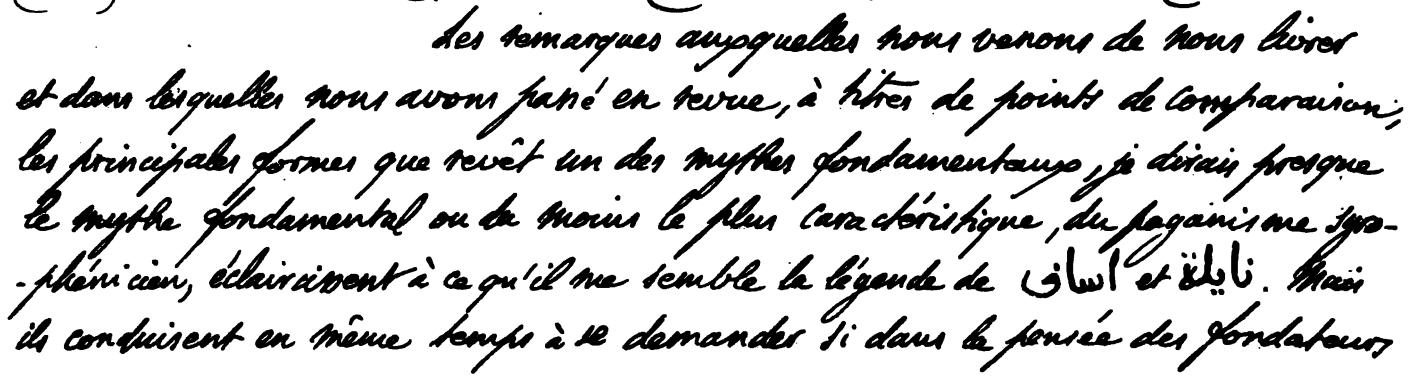 Les remarques auxquelles nous venons de nous livrer
et dans lesquelles nous avons passé en revue, à titres de points de comparaison,
les principales formes que revêt un des mythes fondamentaux, je dirais presque
le mythe fondamental ou du moins le plus caractéristique, du paganisme syro-
-phénicien, éclaircissent à ce qu'il me semble la légende de اساف et نايلة. Mais
ils conduisent en même temps à se demander si dans la pensée des fondateurs